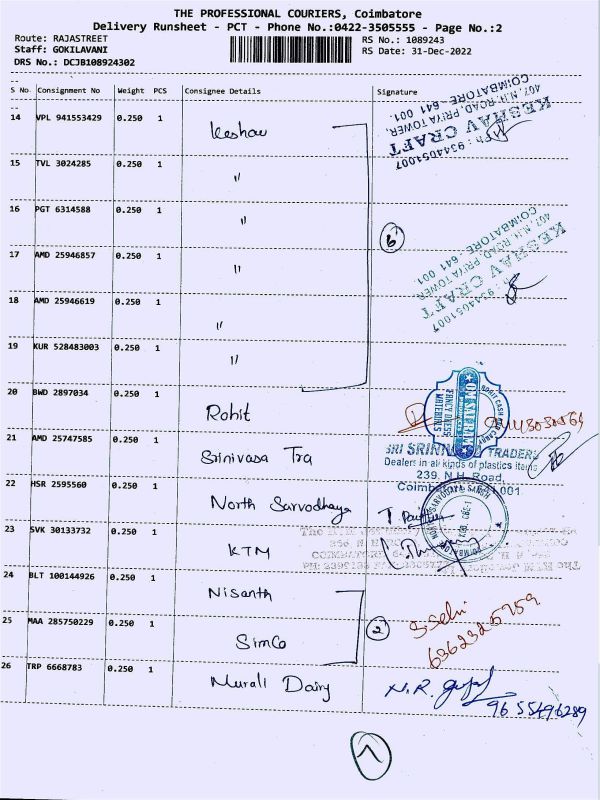 THE PROFESSIONAL COURIERS, Coimbatore
Delivery Runsheet - PCT - Phone No.:0422-3505555 - Page No.:2
Route: RAJASTREET
RS No.: 1089243
Staff: GOKILAVANI
RS Date: 31-Dec-2022
DRS No.: DCJB108924302
S No Consignment No Weight PCS Consignee Details Signature
14 VPL 941553429 0.250 1 Keshav
KESHAV CRAFT
407, N.H. ROAD, PRIYA TOWER,
COIMBATORE - 641 001.
Ph : 9344051007
15 TVL 3024285 0.250 1 "
16 PGT 6314588 0.250 1 "
6
KESHAV CRAFT
407, N.H. ROAD, PRIYA TOWER
COIMBATORE - 641 001
9344051007
17 AMD 25946857 0.250 1 "
18 AMD 25946619 0.250 1 "
19 KUR 528483003 0.250 1 "
20 BWD 2897034 0.250 1 Rohit
FANCY DRESS MATERIALS
21 AMD 25747585 0.250 1 Srinivasa Tra
SRI TRADERS
Dealers in all kinds of plastics items
239, N.H. Road,
22 HSR 2595560 0.250 1 North Sarvodhaya
23 SVK 30133732 0.250 1 KTM
24 BLT 100144926 0.250 1 Nisanth
2
25 MAA 285750229 0.250 1 SimCo
26 TRP 6668783 0.250 1 Murali Dairy
N.R.
96 55496289